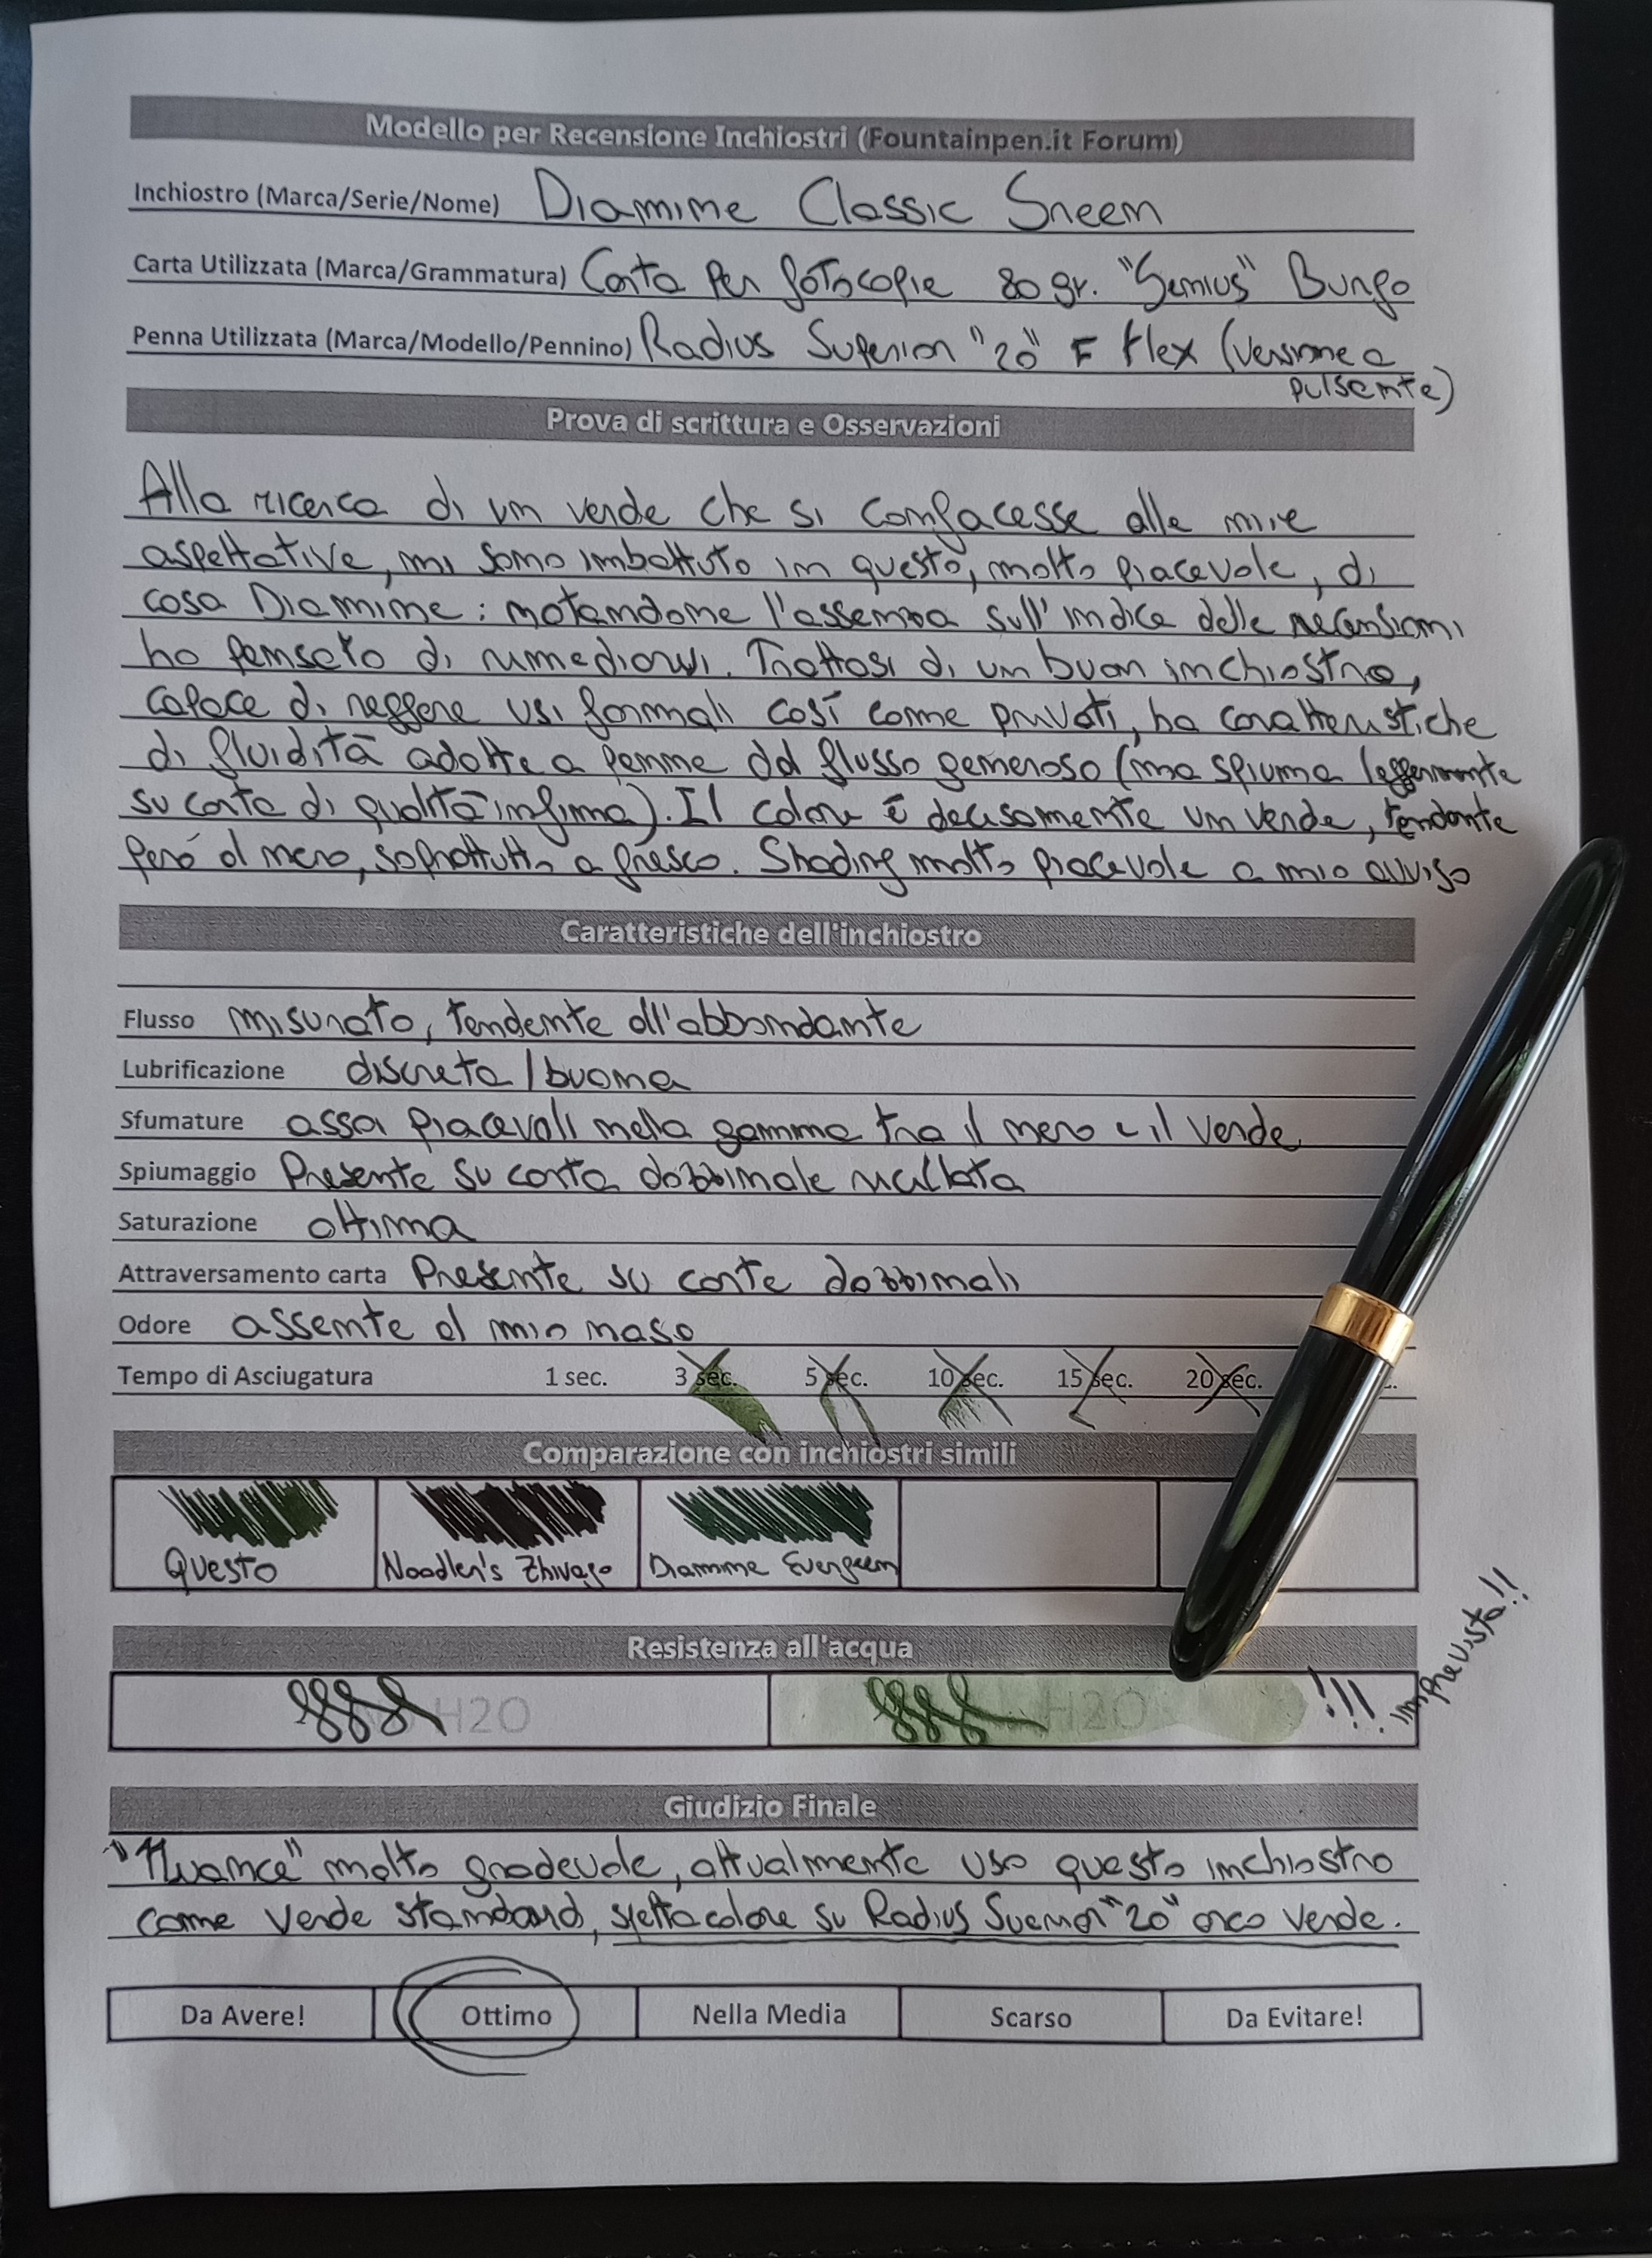 Modello per Recensione Inchiostri (Fountainpen.it Forum)
Inchiostro (Marca/Serie/Nome) Diamine Classic Green
Carta Utilizzata (Marca/Grammatura) Carta per fotocopie 80 gr. "Genius" Burgo
Penna Utilizzata (Marca/Modello/Pennino) Radius Superior "20" F flex (versione a
pulsante)
Prova di scrittura e Osservazioni
Alla ricerca di un verde che si confacesse alle mire
aspettative, mi sono imbattuto in questo, molto piacevole, di
casa Diamine: notandone l'assenza sull'indice delle recensioni
ho pensato di rimediarvi. Trattasi di un buon inchiostro,
capace di reggere usi formali così come privati, ha caratteristiche
di fluidità adatte a penne dal flusso generoso (ma spiuma leggermente
su carta di qualità infima). Il colore è decisamente un verde, tendente
però al nero, soprattutto a fresco. Shading molto piacevole a mio avviso
Caratteristiche dell'inchiostro
Flusso misurato, tendente all'abbondante
Lubrificazione discreta / buona
Sfumature assai piacevoli nella gamma tra il nero e il verde
Spiumaggio Presente su carta dozzinale
Saturazione ottima
Attraversamento carta Presente su carte dozzinali
Odore assente al mio naso
Tempo di Asciugatura 1 sec. 3 sec. 5 sec. 10 sec. 15 sec. 20 sec.
Comparazione con inchiostri simili
Questo Noodler's Zhivago Diamine Evergreen
Resistenza all'acqua
H2O H2O !!! imprevista!!
Giudizio Finale
"Nuance" molto gradevole, attualmente uso questo inchiostro
come verde standard, spettacolare su Radius "20" orco verde.
Da Avere! Ottimo Nella Media Scarso Da Evitare!